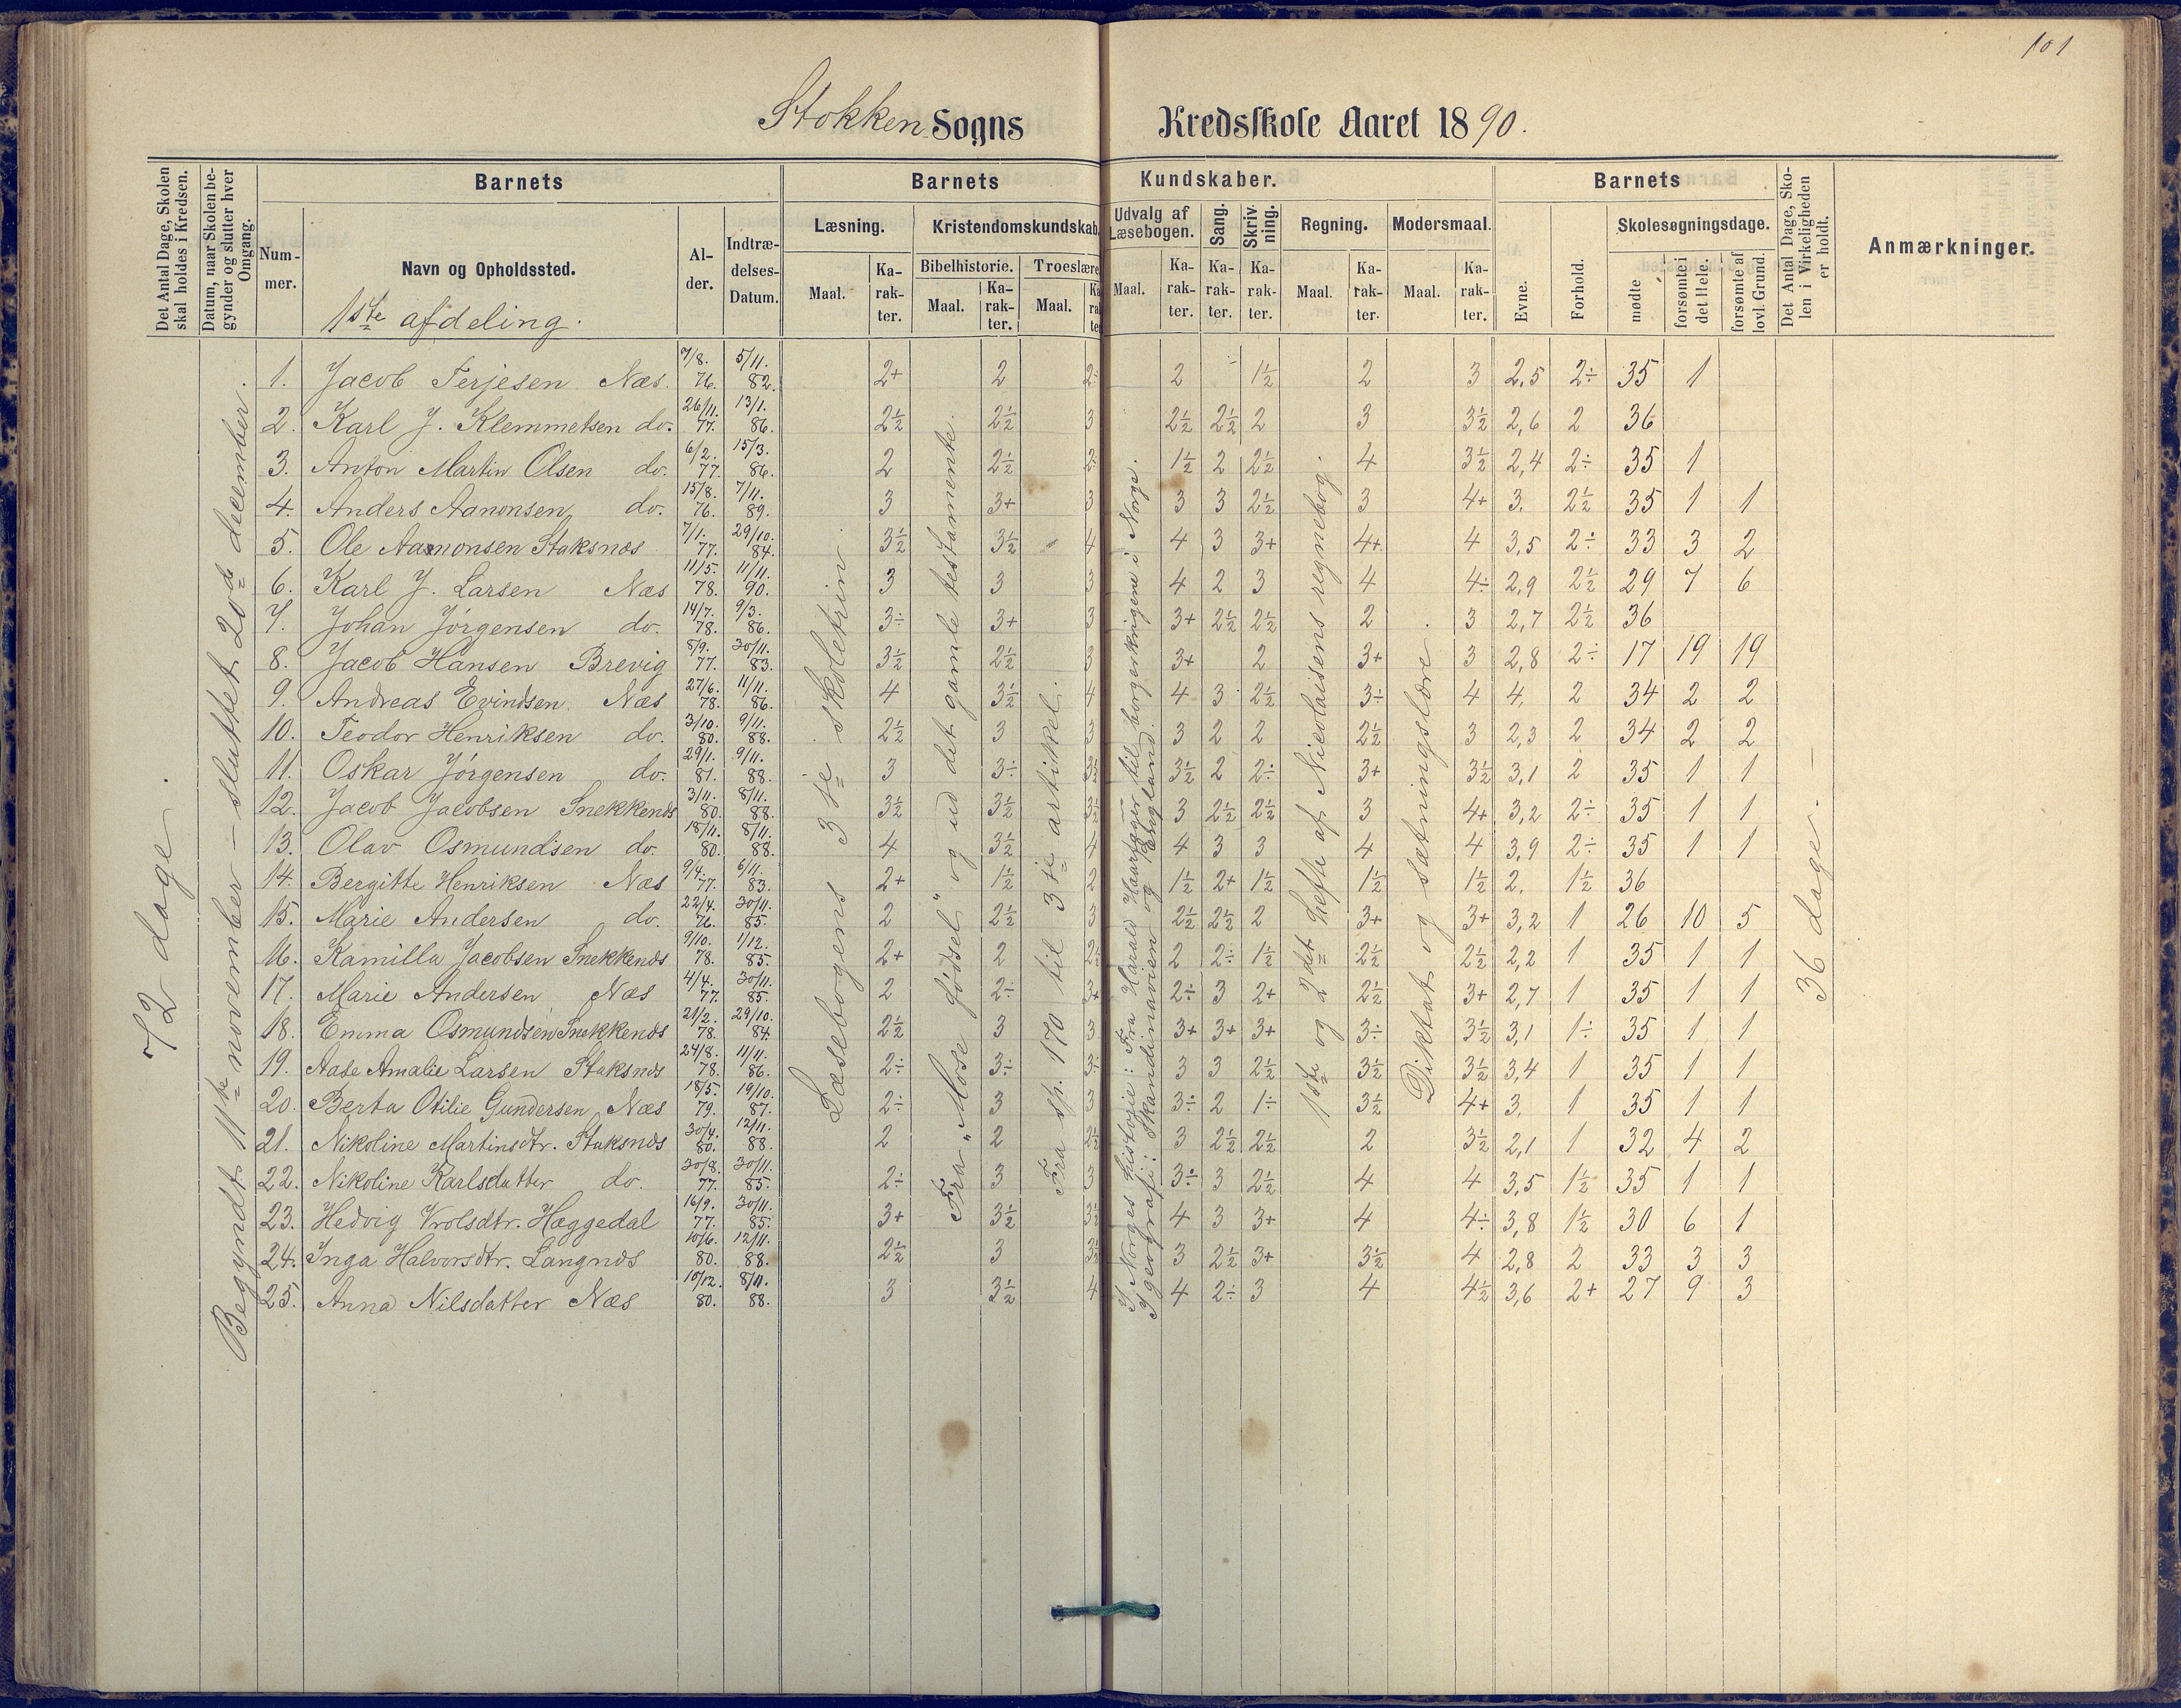 101
Stokken Sogns Kredsskole Aaret 1890.
Det Antal Dage, Skolen skal holdes i Kredsen.
Datum, naar Skolen begynder og slutter hver Omgang.
Barnets
Nummer.
Navn og Opholdssted.
1ste afdeling.
Alder.
Indtrædelses-Datum.
Barnets Kundskaber.
Læsning. Maal. Karakter.
Kristendomskundskab.
Bibelhistorie. Maal. Karakter.
Troeslære Maal. Karakter
Udvalg af Læsebogen. Maal. Karakter.
Sang. Karakter.
Skrivning. Karakter.
Regning. Maal. Karakter.
Modersmaal. Maal. Karakter.
Barnets
Evne.
Forhold.
Skolesøgningsdage.
mødte
forsømte i det Hele.
forsømte af lovl. Grund.
Det Antal Dage, Skolen i Virkeligheden er holdt.
Anmærkninger.
72 dage.
Begyndt 11te november – sluttet 20de december.
Læsebogens 3die skoletrin
Fra „Mose fødsel" og ud det gamle testamente.
Fra sp. 170 til 3die artikel.
I Norges historie: Fra Harald Haarfager til borgerkrigene i Norge.
I geografi: Skandinavien og England.
1ste og 2det hefte af Nicolaisens regnebog.
Diktat og sætningslære.
36 dage.
1. Jacob Terjesen Næs. 7/8. 76. 5/11. 82. 2+ 2 2÷ 2 1½ 2 3 2,5 2÷ 35 1
2. Karl J. Klemmetsen do. 26/11. 77. 13/1. 86. 2½ 2½ 3 2½ 2½ 2 3 3½ 2,6 2 36
3. Anton Martin Olsen do. 6/2. 77. 15/3. 86. 2 2½ 2÷ 1½ 2 2½ 4 3½ 2,4 2÷ 35 1
4. Anders Aanonsen do. 15/8. 76. 7/11. 89. 3 3+ 3 3 3 2½ 3 4+ 3. 2½ 35 1 1
5. Ole Aamonsen Staksnæs 7/1. 77. 29/10. 84. 3½ 3½ 4 4 3 3+ 4+ 4 3,5 2÷ 33 3 2
6. Karl J. Larsen Næs 11/5. 78. 11/11. 90. 3 3 3 4 2 3 4 4÷ 2,9 2½ 29 7 6
7. Johan Jørgensen do. 14/7. 78. 9/3. 86. 3÷ 3+ 3 3+ 2½ 2½ 2 3 2,7 2½ 36
8. Jacob Hansen Brevig 8/9. 77. 30/11. 83. 3½ 2½ 3 3+ 2 3+ 3 2,8 2÷ 17 19 19
9. Andreas Evindsen Næs 27/6. 78. 11/11. 86. 4 3½ 4 4 3 2½ 3÷ 4 4. 2 34 2 2
10. Teodor Henriksen do. 3/10. 80. 9/11. 88. 2½ 3 3 3 2 2 2½ 3 2,3 2 34 2 2
11. Oskar Jørgensen do. 29/1. 81. 9/11. 88. 3 3÷ 3½ 3½ 2 2÷ 3+ 3½ 3,1 2 35 1 1
12. Jacob Jacobsen Snekkenæs 3/11. 80. 8/11. 88. 3½ 3½ 3½ 3 2½ 2½ 3 4+ 3,2 2÷ 35 1 1
13. Olav Osmundsen do. 18/11. 80. 8/11. 88. 4 3½ 4 4 3 3 4 4 3,9 2÷ 35 1 1
14. Bergitte Henriksen Næs 9/4. 77. 6/11. 83. 2+ 1½ 2 1½ 2+ 1½ 1½ 1½ 2. 1½ 36
15. Marie Andersen do. 22/4. 76. 30/11. 85. 2 2½ 3 2½ 2½ 2 3+ 3+ 3,2 1 26 10 5
16. Kamilla Jacobsen Snekkenæs 9/10. 78. 1/12. 85. 2+ 2 2½ 2 2÷ 1½ 2½ 2½ 2,2 1 35 1 1
17. Marie Andersen Næs 4/4. 77. 30/11. 85. 2 2÷ 3+ 2÷ 3 2+ 2½ 3+ 2,7 1 35 1 1
18. Emma Osmundsen Snekkenæs 21/2. 78. 29/10. 84. 2½ 3 3 3+ 3+ 3+ 3÷ 3½ 3,1 1÷ 35 1 1
19. Aase Amalie Larsen Staksnæs 24/8. 78. 11/11. 86. 2÷ 3÷ 3÷ 3 3 2½ 3½ 3½ 3,4 1 35 1 1
20. Berta Otilie Gundersen Næs 18/5. 79. 19/10. 87. 2÷ 3 3 3÷ 2 1÷ 3½ 4+ 3. 1 35 1 1
21. Nikoline Martinsdtr. Staksnæs 30/4. 80. 12/11. 88. 2 2 2½ 3 2½ 2½ 2 3½ 2,1 1 32 4 2
22. Nikoline Karlsdatter do. 30/8. 77. 30/11. 85. 2÷ 3 3 3÷ 3 2½ 4 4 3,5 1½ 35 1 1
23. Hedvig Vrolsdtr. Hæggedal 16/9. 77. 30/11. 85. 3+ 3½ 3½ 4 3 3+ 4 4÷ 3,8 1½ 30 6 1
24. Inga Halvorsdtr. Langnæs 10/6. 80. 12/11. 88. 2½ 3 3½ 3 2½ 3+ 3½ 4 2,8 2 33 3 3
25. Anna Nilsdatter Næs 10/12. 80. 8/11. 88. 3 3½ 4 4 2÷ 3 4 4½ 3,6 2+ 27 9 3